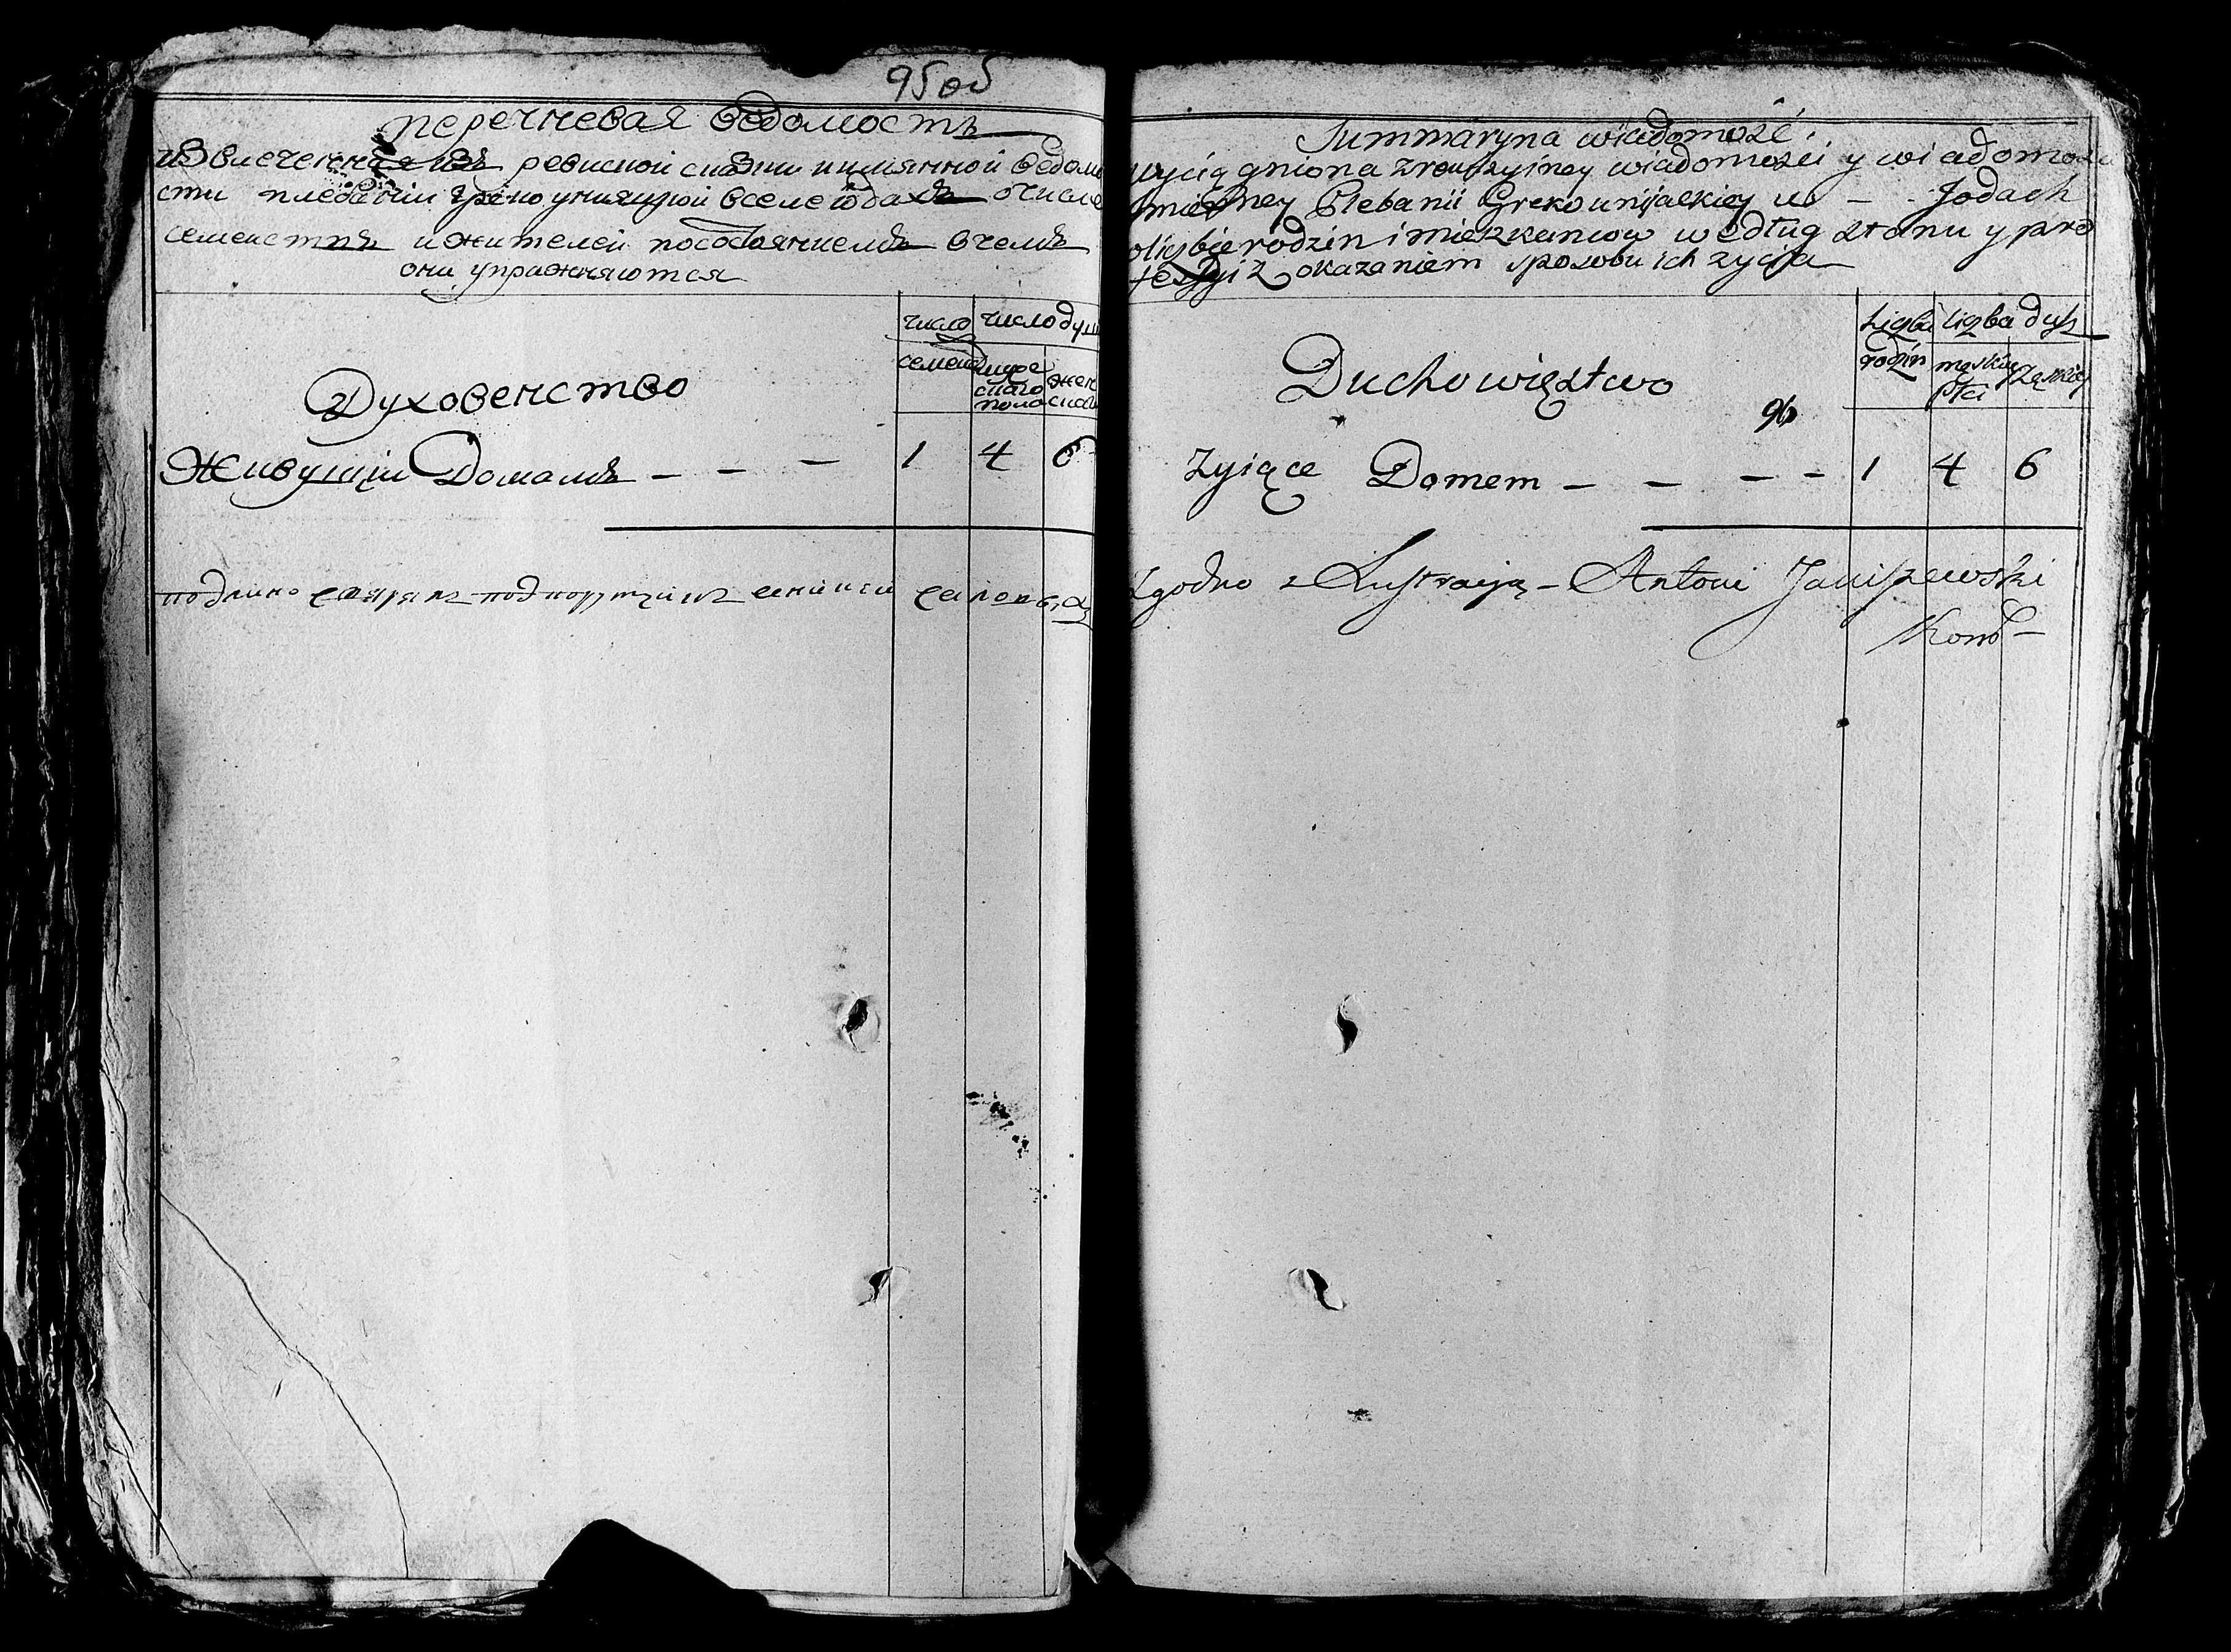 95об
перечневая ведомость
извлеченная изъ ревиской скаски и имянной ведомо
сти плебании греко униацкой в селе Юдахъ о числе
семействъ и жителей по состояниемъ в чемъ
они упражняются
число число душ
семей мужескаго пола женска
Духовенство
Живущіи Домамъ — — — 1 4 6
подлино сверялъ подпоручикъ
Summaryna wiadomość.
wyciągniona z rewizyiney wiadomości y wiadomości
imienney Plebanii Grekouniiackiey w — Jodach
o liczbie rodzin i mieszkancow według stanu y pro
fessyi z okazaniem sposobu ich zycia
Liczba liczba dusz
rodzin męskiey płci żęskiey
Duchowięstwo
96
Zyiące Domem — — — — 1 4 6
Zgodno z Lustracyą — Antoni Janiszewski
Kom